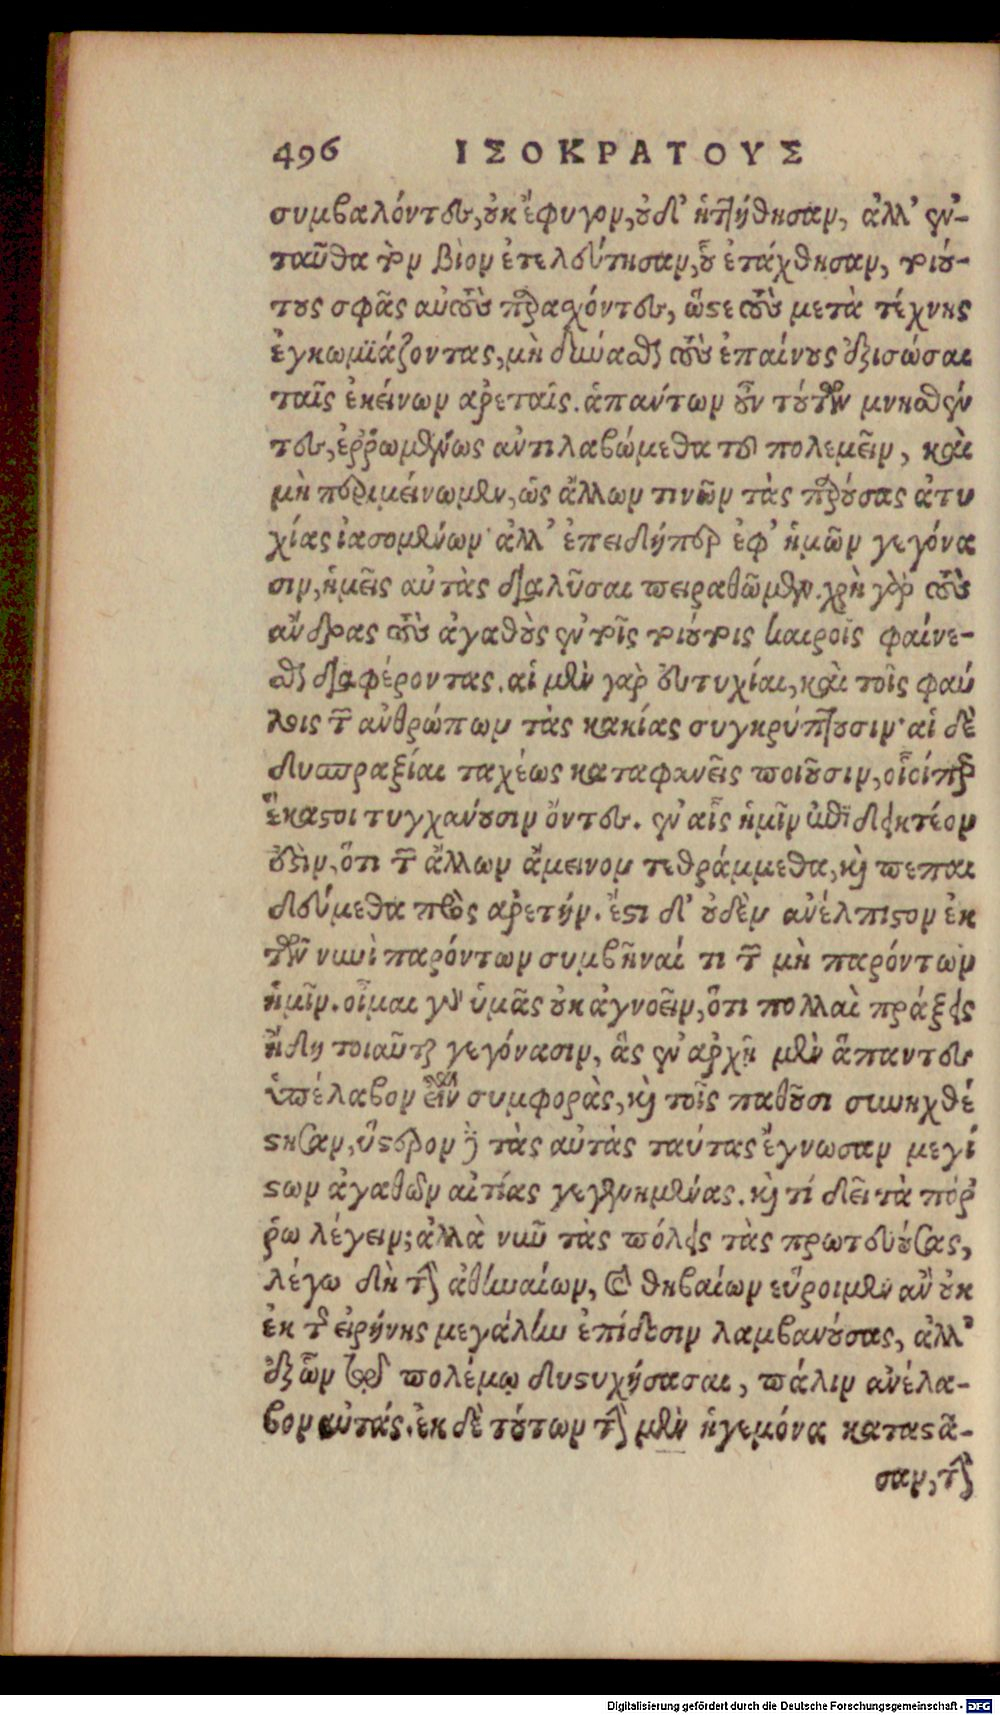 496 ΙΣΟΚΡΑΤΟΥΣ
συμβαλόντες, οὐκ ἔφυγον, οὐδ' ἡττήθησαν, ἀλλ' ἐν-
ταῦθα τὸν βίον ἐτελεύτησαν, οὗ ἐτάχθησαν, τοιού-
τους σφᾶς αὐτοὺς παρασχόντες, ὥστε τοὺς μετὰ τέχνης
ἐγκωμιάζοντας, μὴ δύνασθαι τοὺς ἐπαίνους ἐξισῶσαι
ταῖς ἐκείνων ἀρεταῖς. ἁπάντων οὖν τούτων μνησθέν
τες, ἐῤῥωμένως ἀντιλαβώμεθα τοῦ πολεμεῖν, καὶ
μὴ περιμείνωμεν, ὡς ἄλλων τινῶν τὰς παρούσας ἀτυ
χίας ἰασομένων· ἀλλ' ἐπειδήπερ ἐφ' ἡμῶν γεγόνα
σιν, ἡμεῖς αὐτὰς διαλῦσαι πειραθῶμεν. χρὴ γὰρ τοὺς
ἄνδρας τοὺς ἀγαθοὺς ἐν τοῖς τοιούτοις καιροῖς φαίνε-
σθαι διαφέροντας. αἱ μὲν γὰρ εὐτυχίαι, καὶ τοῖς φαύ
λοις τῶν ἀνθρώπων τὰς κακίας συγκρύπτουσιν· αἱ δὲ
δυσπραξίαι ταχέως καταφανεῖς ποιοῦσιν, οἷοίπερ
ἕκαστοι τυγχάνουσιν ὄντες. ἐν αἷς ἡμῖν ἐπιδεικτέον
ἐστὶν, ὅτι τῶν ἄλλων ἄμεινον τεθράμμεθα, καὶ πεπαι
δεύμεθα πρὸς ἀρετήν. ἔστι δ' οὐδὲν ἀνέλπιστον ἐκ
τῶν νυνὶ παρόντων συμβῆναί τι τῶν μὴ παρόντων
ἡμῖν. οἶμαι γὰρ ὑμᾶς οὐκ ἀγνοεῖν, ὅτι πολλαὶ πράξεις
ἤδη τοιαῦται γεγόνασιν, ἃς ἐν ἀρχῇ μὲν ἅπαντες
ὑπέλαβον εἶναι συμφορὰς, καὶ τοῖς παθοῦσι συνηχθέ
σθησαν, ὕστερον δὲ τὰς αὐτὰς ταύτας ἔγνωσαν μεγί
στων ἀγαθῶν αἰτίας γεγενημένας. καὶ τί δεῖ τὰ πόῤ
ῥω λέγειν; ἀλλὰ νῦν τὰς πόλεις τὰς πρωτευούσας,
λέγω δὴ τὴν ἀθηναίων, καὶ θηβαίων εὕροιμεν ἂν οὐκ
ἐκ τῆς εἰρήνης μεγάλην ἐπίδοσιν λαμβανούσας, ἀλλ'
ἐξ ὧν ἐν τῷ πολέμῳ δυστυχήσασαι, πάλιν ἀνέλα-
βον αὑτάς. ἐκ δὲ τούτων τὴν μὲν ἡγεμόνα καταστᾶ-
σαν, τὴν
Digitalisierung gefördert durch die Deutsche Forschungsgemeinschaft - DFG